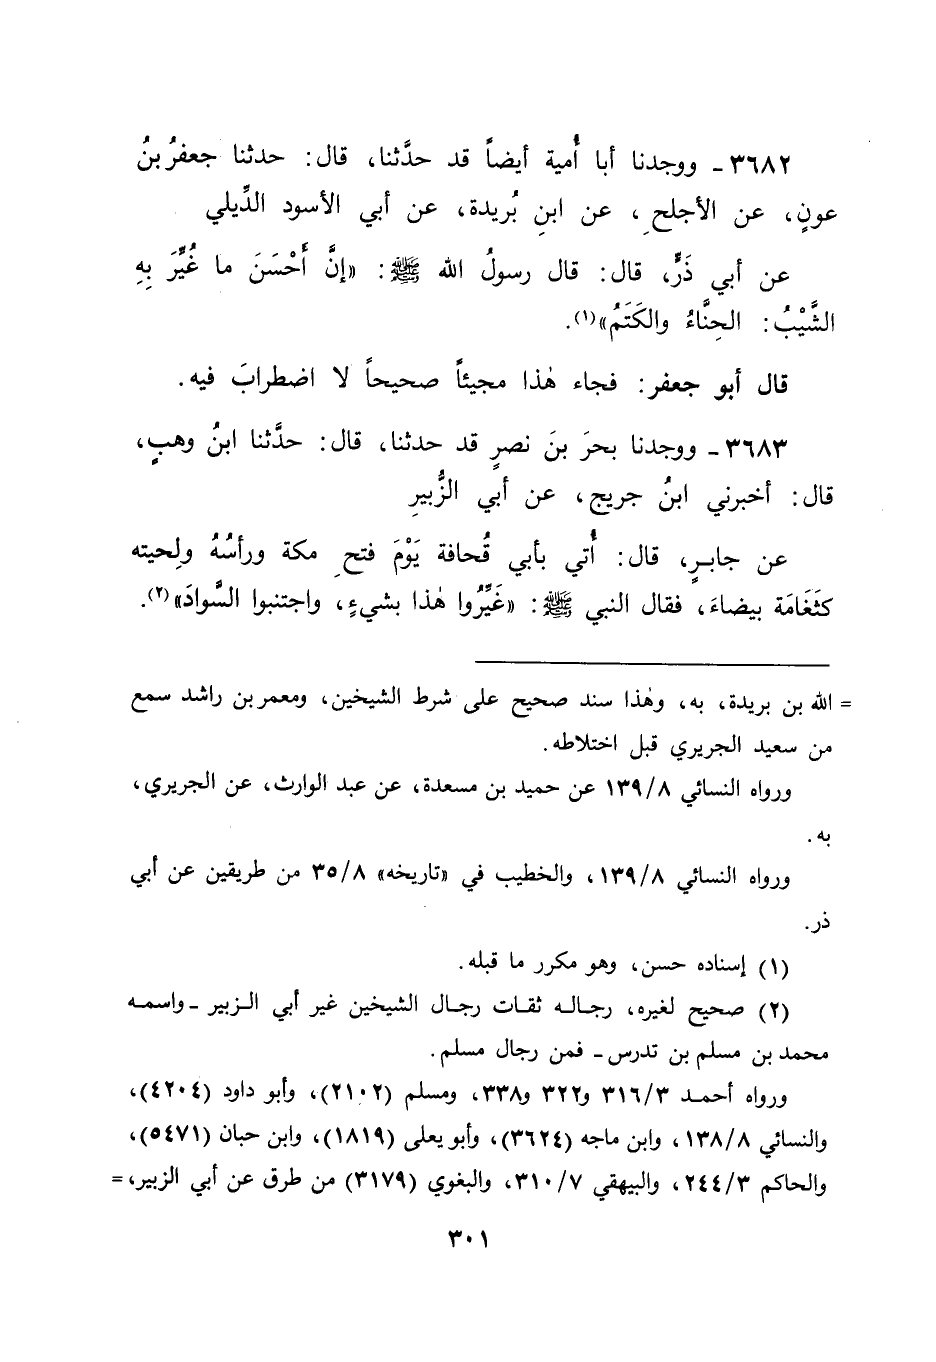 ٣٦٨٢ـ ووجدنا أبا أُمية أيضاً قد حدَّثنا، قال: حدثنا جعفرُ بنُ
عونٍ، عن الأجلحِ، عن ابنِ بُريدة، عن أبي الأسود الدِّيلي
عن أبي ذَرٍّ، قال: قال رسولُ الله ﷺ: «إنَّ أَحْسَنَ ما غُيِّرَ بِهِ
الشَّيْبُ: الحِنَّاءُ والكَتَمُ»(١).
قال أبو جعفر: فجاء هٰذا مجيئاً صحيحاً لا اضطرابَ فيه.
٣٦٨٣ـ ووجدنا بحرَ بنَ نصرٍ قد حدثنا، قال: حدَّثنا ابنُ وهبٍ،
قال: أخبرني ابنُ جريج، عن أبي الزُّبيرِ
عن جابـرٍ، قال: أُتي بأبي قُحافة يَوْمَ فتحِ مكة ورأسُهُ ولِحيته
كثَغَامَة بيضاءَ، فقال النبي ﷺ: «غَيِّرُوا هٰذا بشيءٍ، واجتنبوا السَّوادَ»(٢).
= الله بن بريدة، به، وهٰذا سند صحيح على شرط الشيخين، ومعمر بن راشد سمع
من سعيد الجريري قبل اختلاطه.
ورواه النسائي ١٣٩/٨ عن حميد بن مسعدة، عن عبد الوارث، عن الجريري،
به.
ورواه النسائي ١٣٩/٨، والخطيب في «تاريخه» ٣٥/٨ من طريقين عن أبي
ذر.
(١) إسناده حسن، وهو مكرر ما قبله.
(٢) صحيح لغيره، رجـالـه ثقـات رجـال الشيخين غير أبي الـزبير ـ واسمـه
محمد بن مسلم بن تدرس ـ فمن رجال مسلم.
ورواه أحمـد ٣١٦/٣ و٣٢٢ و٣٣٨، ومسلم (٢١٠٢)، وأبو داود (٤٢٠٤)،
والنسائي ١٣٨/٨، وابن ماجه (٣٦٢٤)، وأبو يعلى (١٨١٩)، وابن حبان (٥٤٧١)،
والحاكم ٢٤٤/٣، والبيهقي ٣١٠/٧، والبغوي (٣١٧٩) من طرق عن أبي الزبير، =
٣٠١